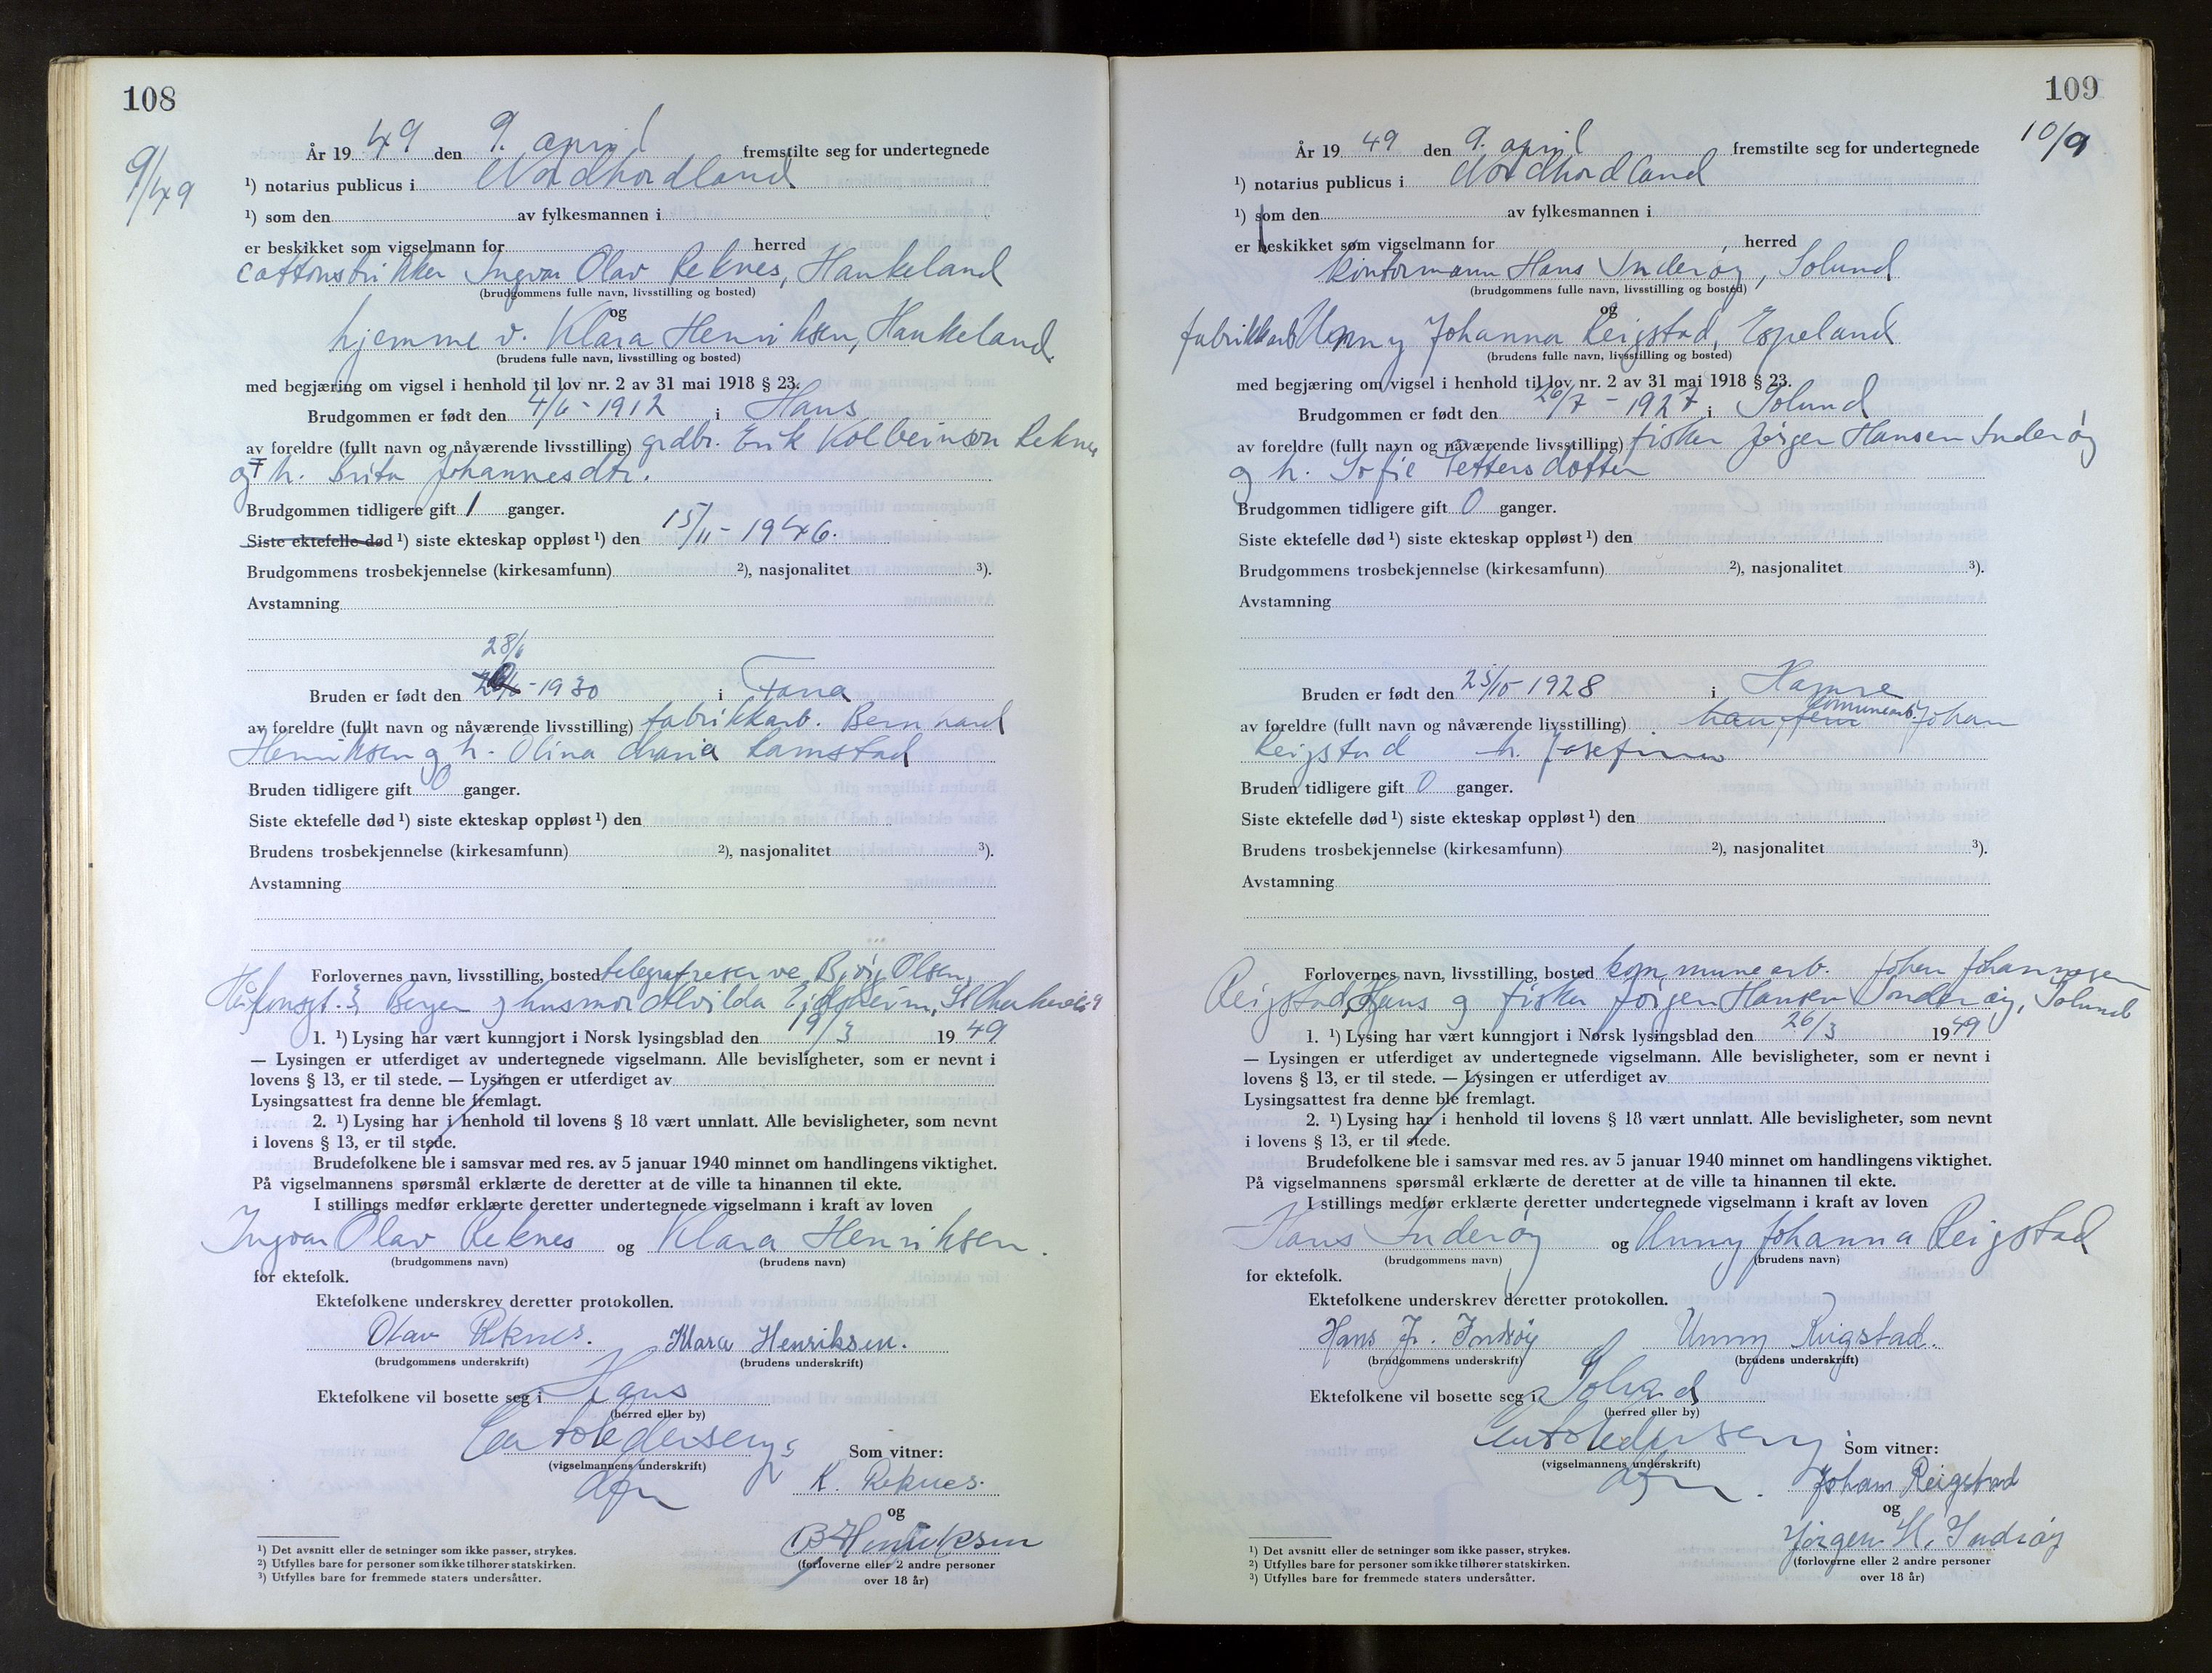 108
9/4 49
År 19 49 den 9. april fremstilte seg for undertegnede
¹) notarius publicus i Nordhordland
¹) som den av fylkesmannen i
er beskikket som vigselmann for herred
cottonstrikker Ingvar Olav Reknes, Haukeland
(brudgommens fulle navn, livsstilling og bosted)
og
hjemme v. Klara Henriksen, Haukeland.
(brudens fulle navn, livsstilling og bosted)
med begjæring om vigsel i henhold til lov nr. 2 av 31 mai 1918 § 23.
Brudgommen er født den 4/6 - 1912 i Haus
av foreldre (fullt navn og nåværende livsstilling) grdbr. Erik Kolbeinson Reknes
og h. Brita Johannesdtr.
Brudgommen tidligere gift 1 ganger.
Siste ektefelle død ¹) siste ekteskap oppløst ¹) den 15/11 - 1946.
Brudgommens trosbekjennelse (kirkesamfunn) ²), nasjonalitet ³).
Avstamning
28/6
Bruden er født den - 1930 i Fana
av foreldre (fullt navn og nåværende livsstilling) fabrikkarb. Bernhard
Henriksen og h. Olina Maria Ramstad
Bruden tidligere gift 0 ganger.
Siste ektefelle død ¹) siste ekteskap oppløst ¹) den
Brudens trosbekjennelse (kirkesamfunn) ²), nasjonalitet ³).
Avstamning
Forlovernes navn, livsstilling, bosted telegrafreserve Olsen,
Håkonsgt. 3, Bergen og husmor Alvilda
1. ¹) Lysing har vært kunngjort i Norsk lysingsblad den 19/3 19 49
— Lysingen er utferdiget av undertegnede vigselmann. Alle bevisligheter, som er nevnt i
lovens § 13, er til stede. — Lysingen er utferdiget av
Lysingsattest fra denne ble fremlagt.
2. ¹) Lysing har i henhold til lovens § 18 vært unnlatt. Alle bevisligheter, som nevnt
i lovens § 13, er til stede.
Brudefolkene ble i samsvar med res. av 5 januar 1940 minnet om handlingens viktighet.
På vigselmannens spørsmål erklærte de deretter at de ville ta hinannen til ekte.
I stillings medfør erklærte deretter undertegnede vigselmann i kraft av loven
Ingvar Olav Reknes og Klara Henriksen.
(brudgommens navn) (brudens navn)
for ektefolk.
Ektefolkene underskrev deretter protokollen.
Olav Reknes. Klara Henriksen.
(brudgommens underskrift) (brudens underskrift)
Ektefolkene vil bosette seg i Haus
(herred eller by)
Som vitner:
(vigselmannens underskrift)
K. Reknes.
og
B Henriksen
(forloverne eller 2 andre personer
over 18 år)
¹) Det avsnitt eller de setninger som ikke passer, strykes.
²) Utfylles bare for personer som ikke tilhører statskirken.
³) Utfylles bare for fremmede staters undersåtter.
109
10/9
År 19 49 den 9. april fremstilte seg for undertegnede
¹) notarius publicus i Nordhordland
¹) som den av fylkesmannen i
er beskikket som vigselmann for , herred
kontormann Hans Inderøy, Solund
(brudgommens fulle navn, livsstilling og bosted)
og
fabrikkarb Unny Johanna Reigstad, Espeland
(brudens fulle navn, livsstilling og bosted)
med begjæring om vigsel i henhold til lov nr. 2 av 31 mai 1918 § 23.
Brudgommen er født den 26/7 - 1927 i Solund
av foreldre (fullt navn og nåværende livsstilling) fisker Jørgen Hansen Inderøy
og h. Sofie Pettersdotter
Brudgommen tidligere gift 0 ganger.
Siste ektefelle død ¹) siste ekteskap oppløst ¹) den
Brudgommens trosbekjennelse (kirkesamfunn) ²), nasjonalitet ³).
Avstamning
Bruden er født den 25/10 1928 i Hamre
av foreldre (fullt navn og nåværende livsstilling) kommunearb. Johan
Reigstad h. Josefine
Bruden tidligere gift 0 ganger.
Siste ektefelle død ¹) siste ekteskap oppløst ¹) den
Brudens trosbekjennelse (kirkesamfunn) ²), nasjonalitet ³).
Avstamning
Forlovernes navn, livsstilling, bosted kommunearb. Johan Johannesen
Reigstad, Haus og fisker Jørgen Hansen Inderøy, Solund
1. ¹) Lysing har vært kunngjort i Norsk lysingsblad den 26/3 19 49
— Lysingen er utferdiget av undertegnede vigselmann. Alle bevisligheter, som er nevnt i
lovens § 13, er til stede. — Lysingen er utferdiget av
Lysingsattest fra denne ble fremlagt.
2. ¹) Lysing har i henhold til lovens § 18 vært unnlatt. Alle bevisligheter, som nevnt
i lovens § 13, er til stede.
Brudefolkene ble i samsvar med res. av 5 januar 1940 minnet om handlingens viktighet.
På vigselmannens spørsmål erklærte de deretter at de ville ta hinannen til ekte.
I stillings medfør erklærte deretter undertegnede vigselmann i kraft av loven
Hans Inderøy og Unny Johanna Reigstad
(brudgommens navn) (brudens navn)
for ektefolk.
Ektefolkene underskrev deretter protokollen.
Hans J. Indrøy Unny Reigstad.
(brudgommens underskrift) (brudens underskrift)
Ektefolkene vil bosette seg i Solund
(herred eller by)
Som vitner:
(vigselmannens underskrift)
Johan Reigstad
og
Jørgen H. Indrøy
(forloverne eller 2 andre personer
over 18 år)
¹) Det avsnitt eller de setninger som ikke passer, strykes.
²) Utfylles bare for personer som ikke tilhører statskirken.
³) Utfylles bare for fremmede staters undersåtter.